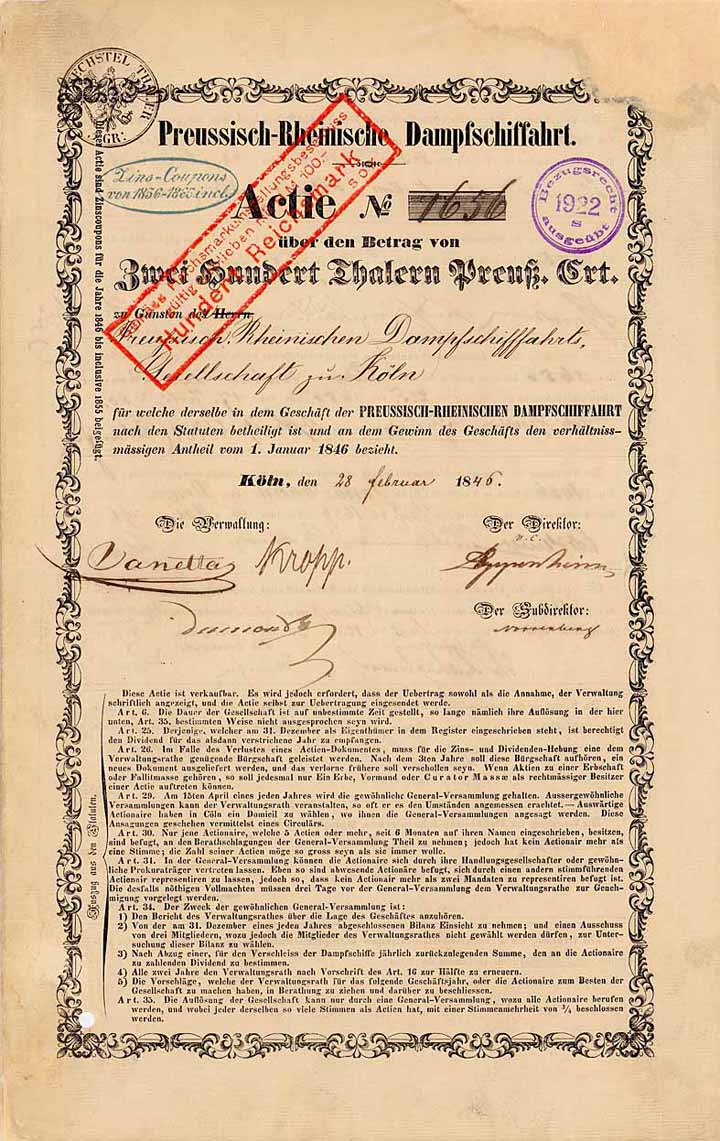 SECHSTEL THALER
GR:
Preussisch-Rheinische Dampfschiffahrt.
Zins-Coupons
von 1856-1865 incl.
Actie № 1656
Bezugsrecht
1922
s
ausgeübt
über den Betrag von
Zwei Hundert Thalern Preuß. Crt.
Hundert Reichsmark
zu Gunsten des Herrn
Preussisch-Rheinischen Dampfschifffahrts-
Gesellschaft zu Köln
für welche derselbe in dem Geschäft der PREUSSISCH-RHEINISCHEN DAMPFSCHIFFAHRT
nach den Statuten betheiligt ist und an dem Gewinn des Geschäfts den verhältniss-
mässigen Antheil vom 1. Januar 1846 bezieht.
Köln, den 28 februar 1846.
Die Verwaltung:
Der Direktor:
Kropp.
Oppenheim
Der Subdirektor:
Dieser Actie sind Zinscoupons für die Jahre 1846 bis inclusive 1855 beigefügt.
Auszug aus den Statuten.
Diese Actie ist verkaufbar. Es wird jedoch erfordert, dass der Uebertrag sowohl als die Annahme, der Verwaltung
schriftlich angezeigt, und die Actie selbst zur Uebertragung eingesendet werde.
Art. 6. Die Dauer der Gesellschaft ist auf unbestimmte Zeit gestellt, so lange nämlich ihre Auflösung in der hier
unten, Art. 35, bestimmten Weise nicht ausgesprochen seyn wird.
Art. 25. Derjenige, welcher am 31. Dezember als Eigenthümer in dem Register eingeschrieben steht, ist berechtigt
den Dividend für das alsdann verstrichene Jahr zu empfangen.
Art. 26. Im Falle des Verlustes eines Actien-Dokumentes, muss für die Zins- und Dividenden-Hebung eine dem
Verwaltungsrathe genügende Bürgschaft geleistet werden. Nach dem 3ten Jahre soll diese Bürgschaft aufhören, ein
neues Dokument ausgeliefert werden, und das verlorne frühere soll verschollen seyn. Wenn Aktien zu einer Erbschaft
oder Fallitmasse gehören, so soll jedesmal nur Ein Erbe, Vormund oder Curator Massae als rechtmässiger Besitzer
einer Actie auftreten können.
Art. 29. Am 15ten April eines jeden Jahres wird die gewöhnliche General-Versammlung gehalten. Aussergewöhnliche
Versammlungen kann der Verwaltungsrath veranstalten, so oft er es den Umständen angemessen erachtet. — Auswärtige
Actionaire haben in Cöln ein Domicil zu wählen, wo ihnen die General-Versammlungen angesagt werden. Diese
Ansagungen geschehen vermittelst eines Circulärs.
Art. 30. Nur jene Actionaire, welche 5 Actien oder mehr, seit 6 Monaten auf ihren Namen eingeschrieben, besitzen,
sind befugt, an den Berathschlagungen der General-Versammlung Theil zu nehmen; jedoch hat kein Actionair mehr als
eine Stimme; die Zahl seiner Actien möge so gross seyn als sie immer wolle.
Art. 31. In der General-Versammlung können die Actionaire sich durch ihre Handlungsgesellschafter oder gewöhn-
liche Prokuraträger vertreten lassen. Eben so sind abwesende Actionäre befugt, sich durch einen andern stimmführenden
Actionair representiren zu lassen, jedoch so, dass kein Actionair mehr als zwei Mandaten zu representiren befugt ist.
Die desfalls nöthigen Vollmachten müssen drei Tage vor der General-Versammlung dem Verwaltungsrathe zur Geneh-
migung vorgelegt werden.
Art. 34. Der Zweck der gewöhnlichen General-Versammlung ist:
1) Den Bericht des Verwaltungsrathes über die Lage des Geschäftes anzuhören.
2) Von der am 31. Dezember eines jeden Jahres abgeschlossenen Bilanz Einsicht zu nehmen; und einen Ausschuss
von drei Mitgliedern, wozu jedoch die Mitglieder des Verwaltungsrathes nicht gewählt werden dürfen, zur Unter-
suchung dieser Bilanz zu wählen.
3) Nach Abzug einer, für den Verschleiss der Dampfschiffe jährlich zurückzulegenden Summe, den an die Actionaire
zu zahlenden Dividend zu bestimmen.
4) Alle zwei Jahre den Verwaltungsrath nach Vorschrift des Art. 16 zur Hälfte zu erneuern.
5) Die Vorschläge, welche der Verwaltungsrath für das folgende Geschäftsjahr, oder die Actionaire zum Besten der
Gesellschaft zu machen haben, in Berathung zu ziehen und darüber zu beschliessen.
Art. 35. Die Auflösung der Gesellschaft kann nur durch eine General-Versammlung, wozu alle Actionaire berufen
werden, und wobei jeder derselben so viele Stimmen als Actien hat, mit einer Stimmenmehrheit von ¾ beschlossen
werden.